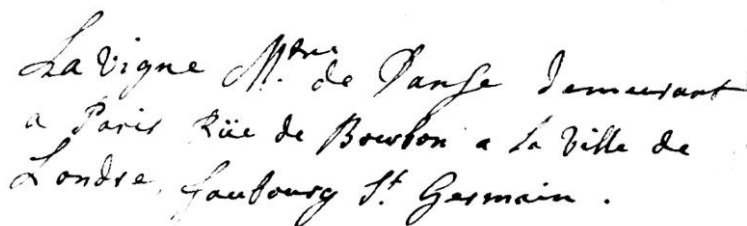 La Vigne M.tre de Danse demeurant
a Paris Rüe de Bourbon a La Ville de
Londre, fauboug St. Germain.